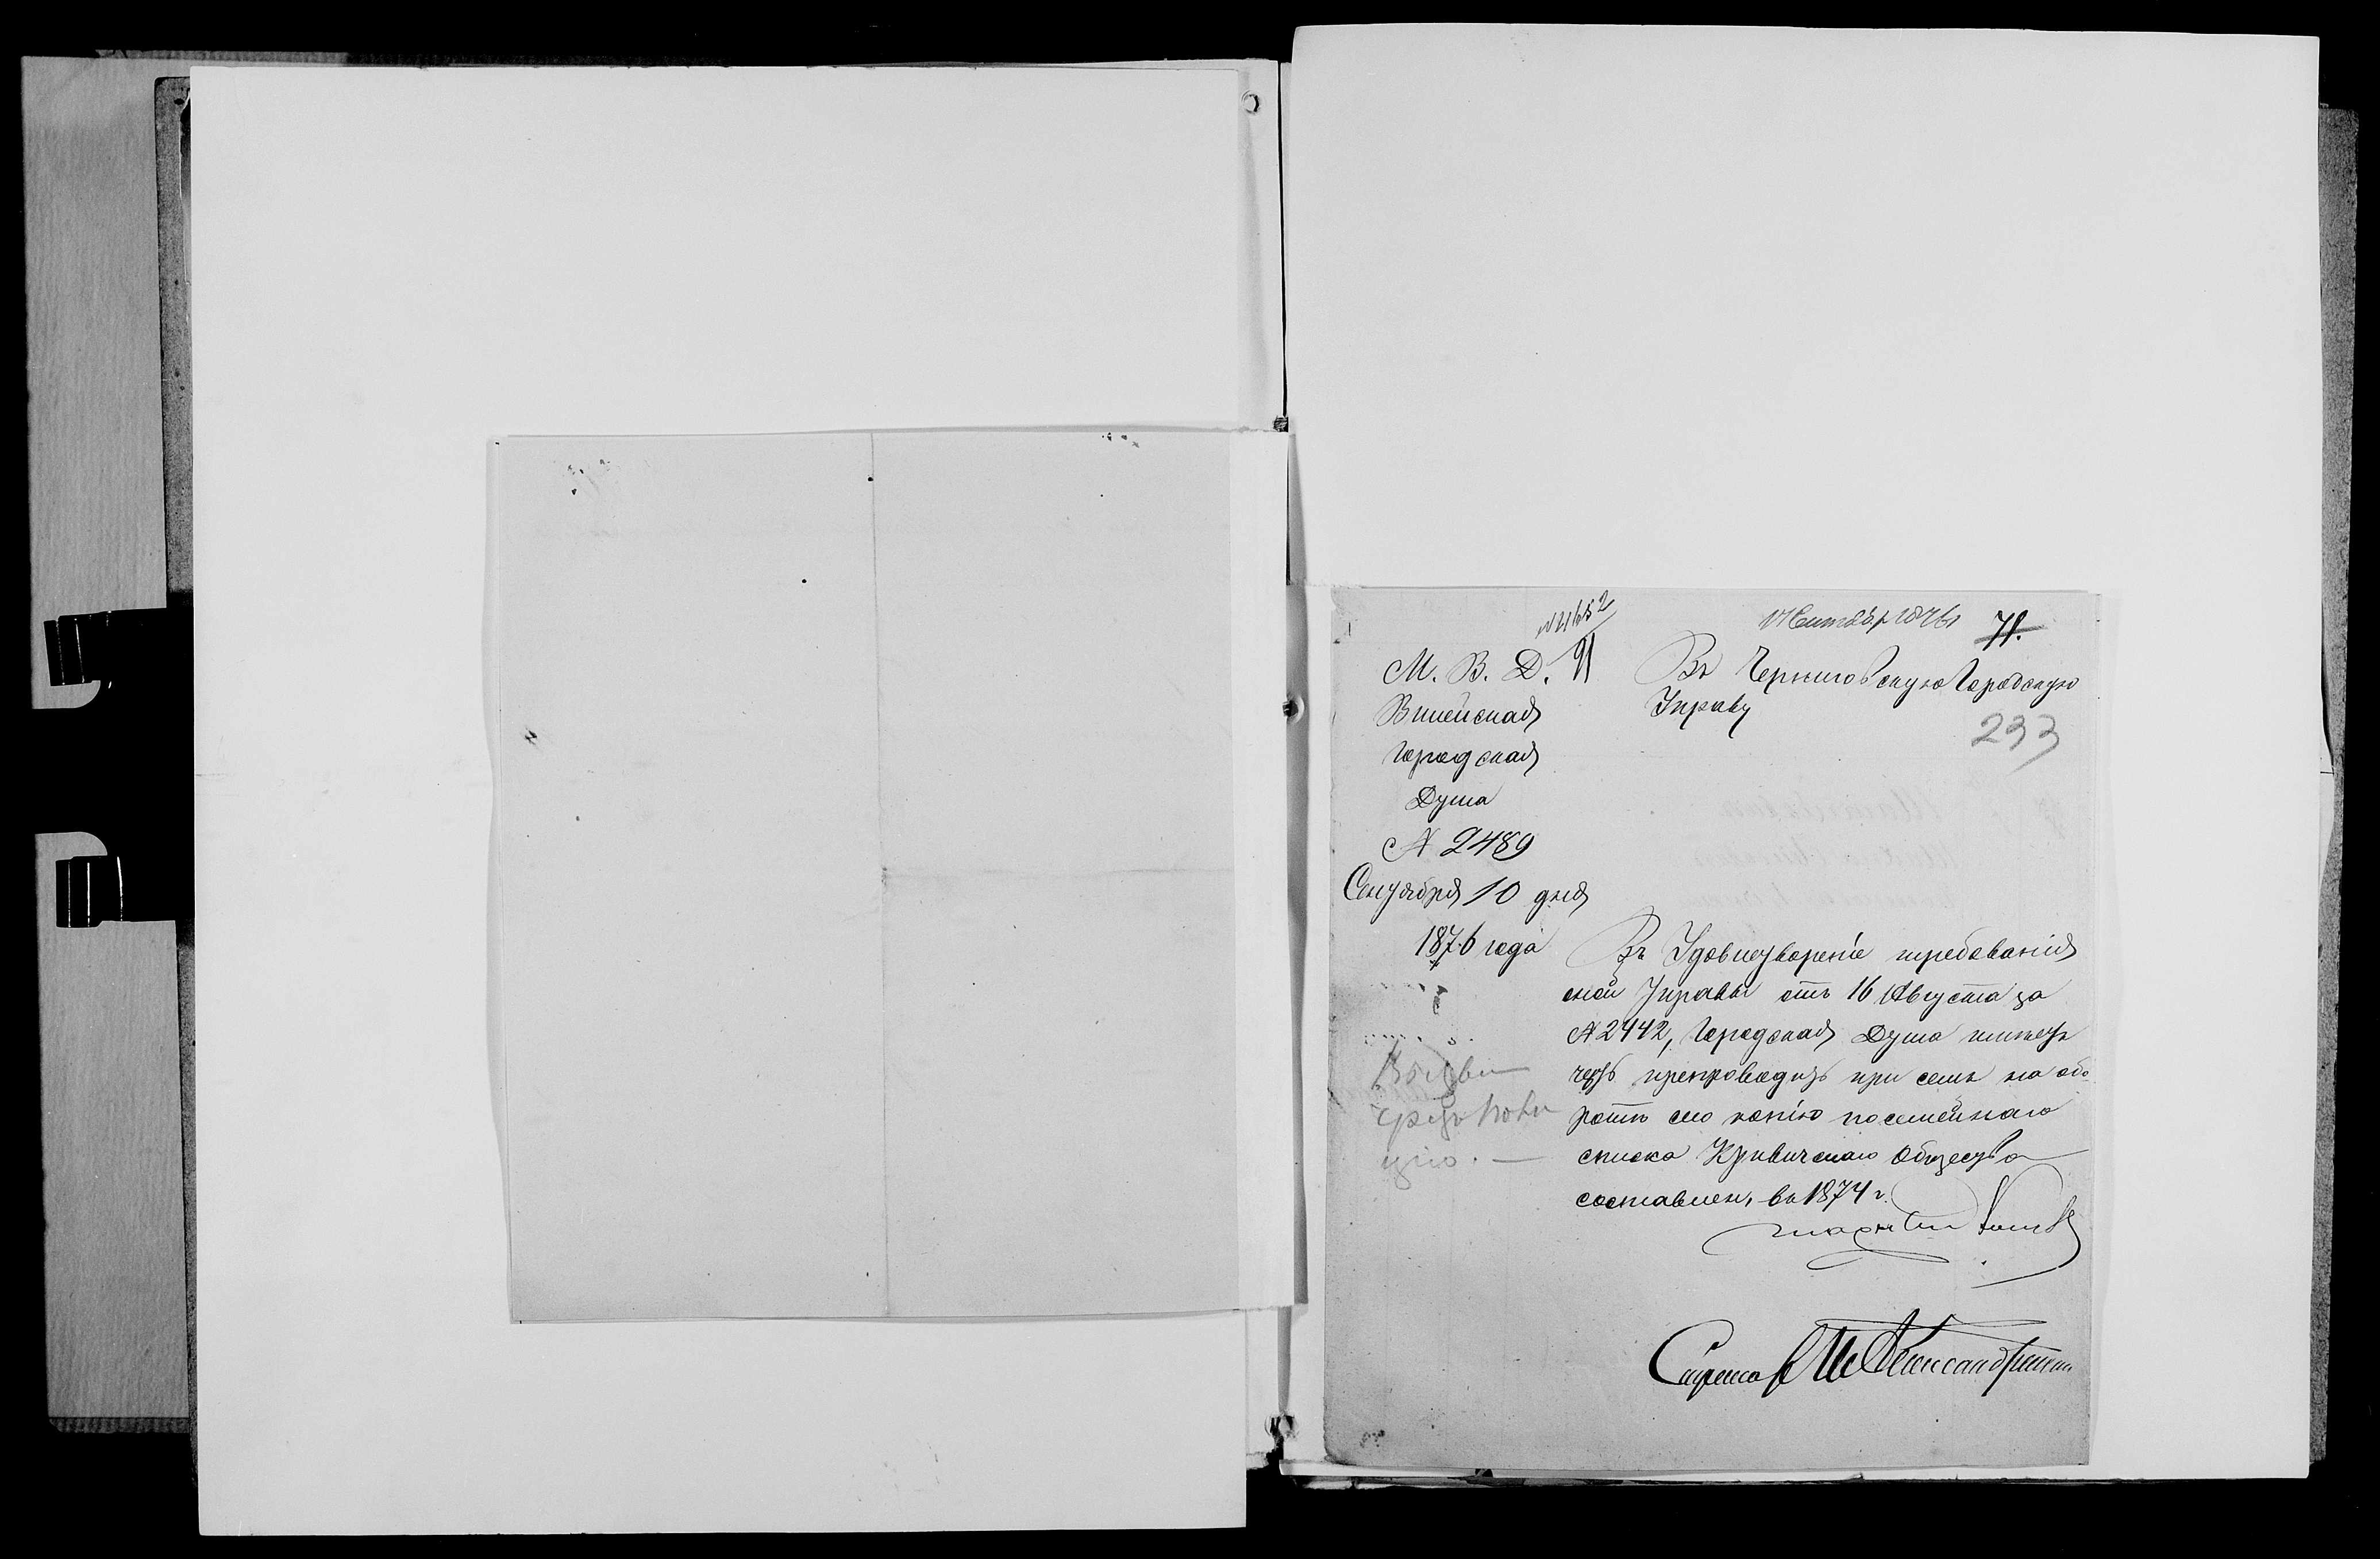 17 Сентября 1876 71.
М. В. Д. Въ Черниговскую Городскую
Управу
Вилейская
233
Городская
Дума
№ 2489
Сентября 10 дня
1876 года
Въ Удовлетвореніе требованія
оной Управы отъ 16 Августа за
№ 2442, Городская Дума имѣетъ
честь препроводить при семъ на обо
ротѣ сего копію посемейнаго
списка Кривичскаго Общества
составлен, въ 1874 г.